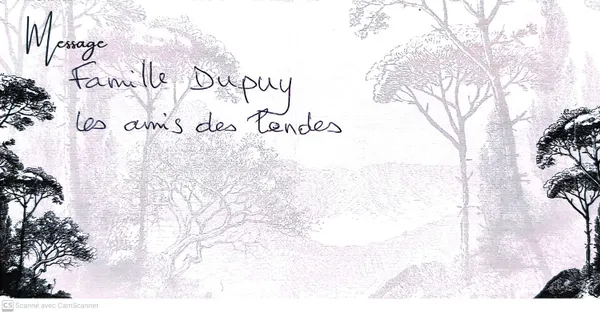 Message
Famille Dupuy
les amis des Landes
CS Scanné avec CamScanner